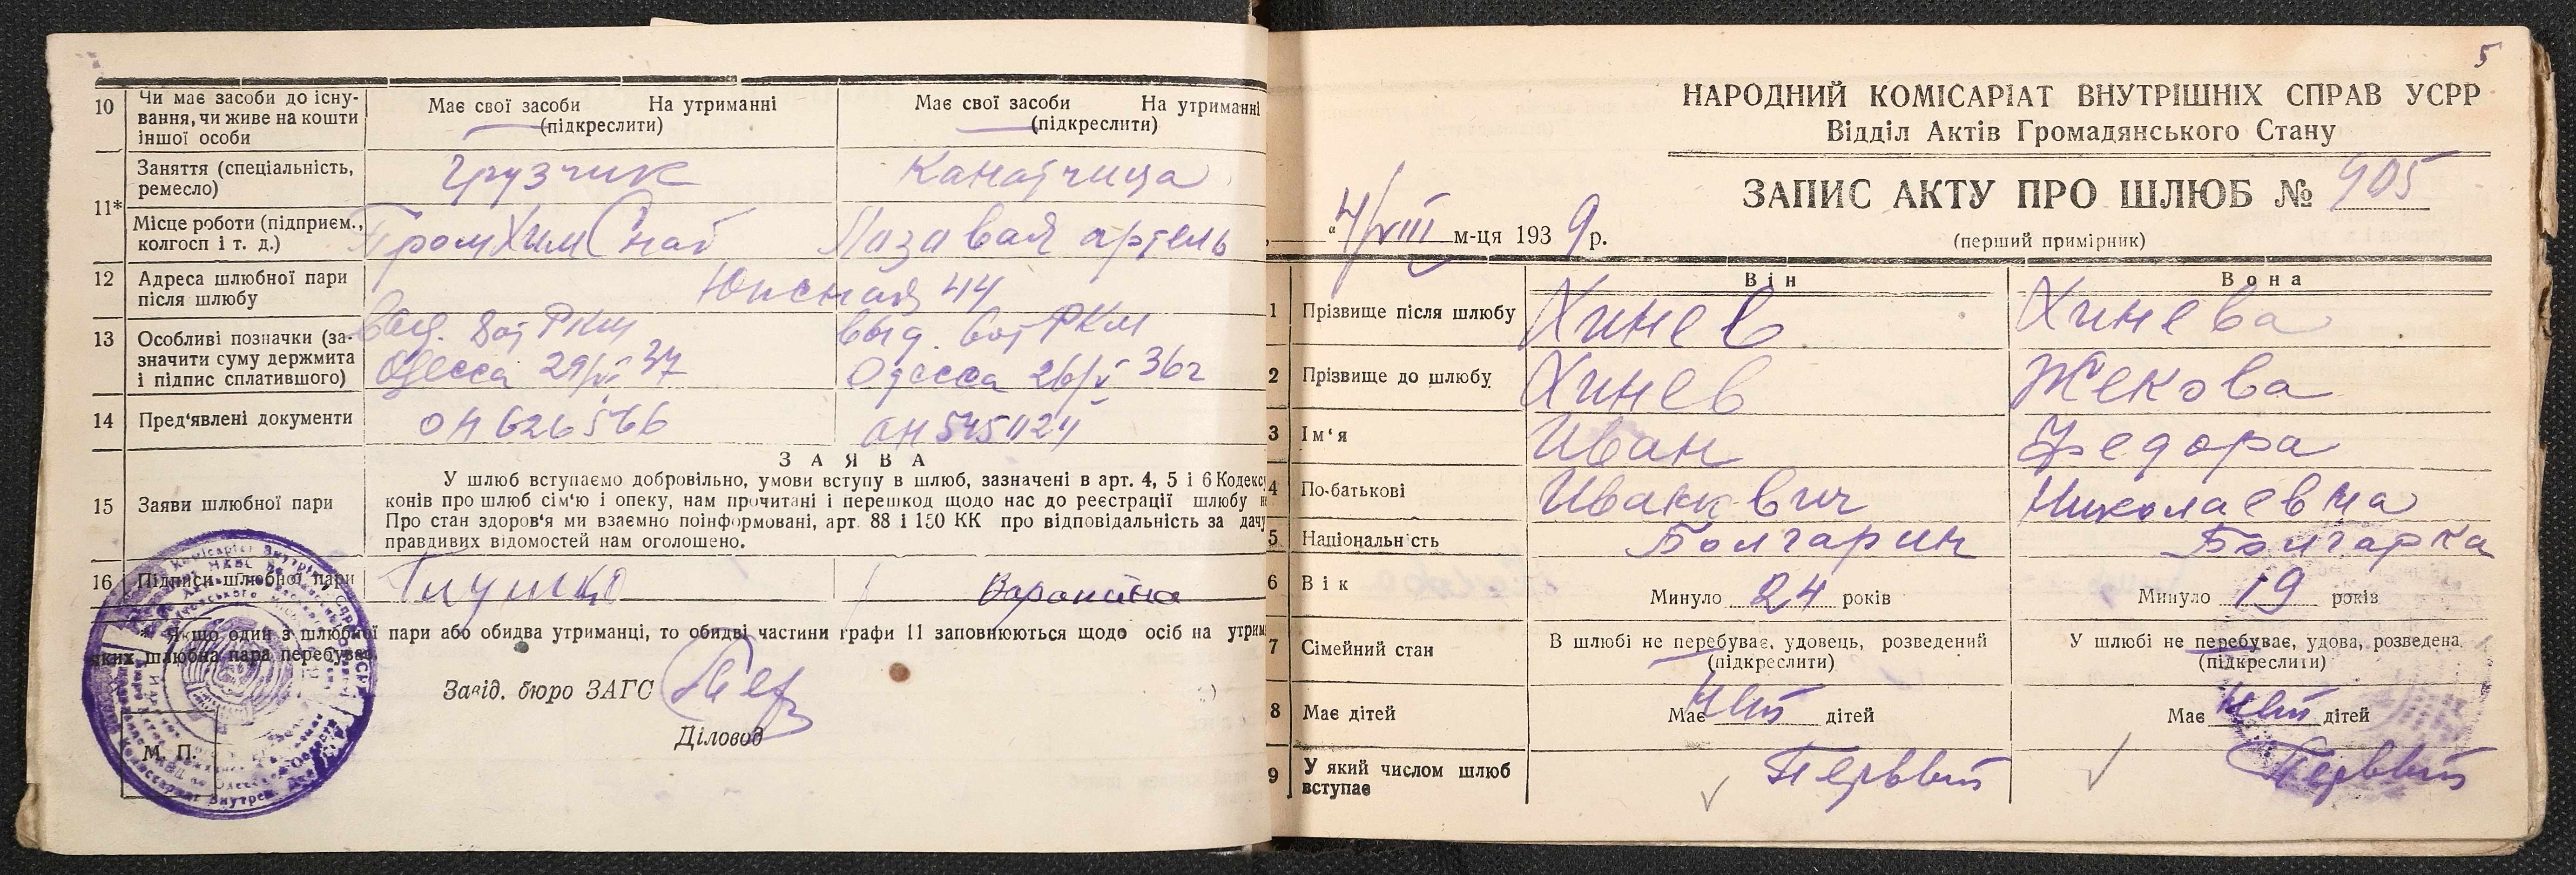 10 Чи має засоби до існу-
вання, чи живе на кошти
іншої особи
Має свої засоби На утриманні
(підкреслити)
Має свої засоби На утриманні
(підкреслити)
11*
Заняття (спеціальність,
ремесло)
Грузчик
Канатчица
Місце роботи (підприєм.,
колгосп і т. д.)
ПромХимСнаб
Лазавая артель
12 Адреса шлюбної пари
після шлюбу
Южная 44
13 Особливі позначки (за-
значити суму держмита
і підпис сплатившого)
выд. 8от РКМ
Одесса 29/VI 37
выд. 6от РКМ
Одесса 26/V 36г
14 Пред'явлені документи
ОН 626566
ЗАЯВА
15 Заяви шлюбної пари
У шлюб вступаємо добровільно, умови вступу в шлюб, зазначені в арт. 4, 5 і 6 Кодекс
конів про шлюб сім'ю і опеку, нам прочитані і перешкод щодо нас до реєстрації шлюбу н
Про стан здоров'я ми взаємно поінформовані, арт. 88 і 150 КК про відповідальність за дачу
правдивих відомостей нам оголошено.
16 Підписи шлюбної пари
* Якщо один з шлюбної пари або обидва утриманці, то обидві частини графи 11 заповнюються щодо осіб на утрим
яких шлюбна пара перебуває
Завід. бюро ЗАГС
Діловод
М. П.
5
НАРОДНИЙ КОМІСАРІАТ ВНУТРІШНІХ СПРАВ УСРР
Відділ Актів Громадянського Стану
ЗАПИС АКТУ ПРО ШЛЮБ № 905
(перший примірник)
"4/VIII м-ця 1939 р.
Він
Вона
1 Прізвище після шлюбу
Хинев
Хинева
2 Прізвище до шлюбу
Хинев
Жекова
3 Ім'я
Иван
Федора
4 По-батькові
Николаевна
5 Національність
Болгарин
Болгарка
6 Вік
Минуло 24 років
Минуло 19 років
7 Сімейний стан
В шлюбі не перебуває, удовець, розведений
(підкреслити)
У шлюбі не перебуває, удова, розведена
(підкреслити)
8 Має дітей
Має Нет дітей
Має Нет дітей
9 У який числом шлюб
вступає
Первый
Первый